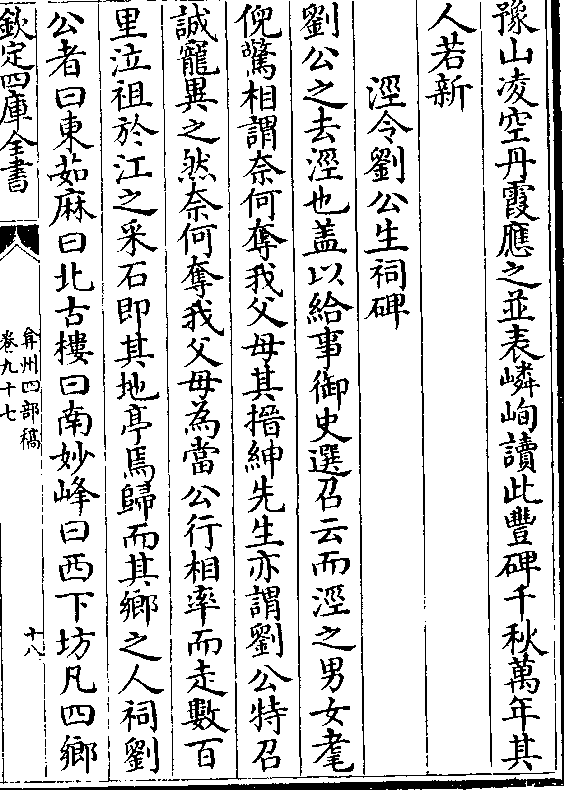 豫山凌空丹霞應之並表嶙峋讀此豐碑千秋萬年其
人若新
涇令劉公生祠碑
劉公之去涇也盖以給事御史選召云而涇之男女耄
倪驚相謂奈何奪我父母其搢紳先生亦謂劉公特召
誠寵異之然奈何奪我父母為當公行相率而走數百
里泣祖於江之采石即其地亭焉歸而其鄉之人祠劉
公者曰東茹麻曰北古樓曰南妙峰曰西下坊凡四鄉
欽定四庫全書
弇州四部稿
卷九十七
十八